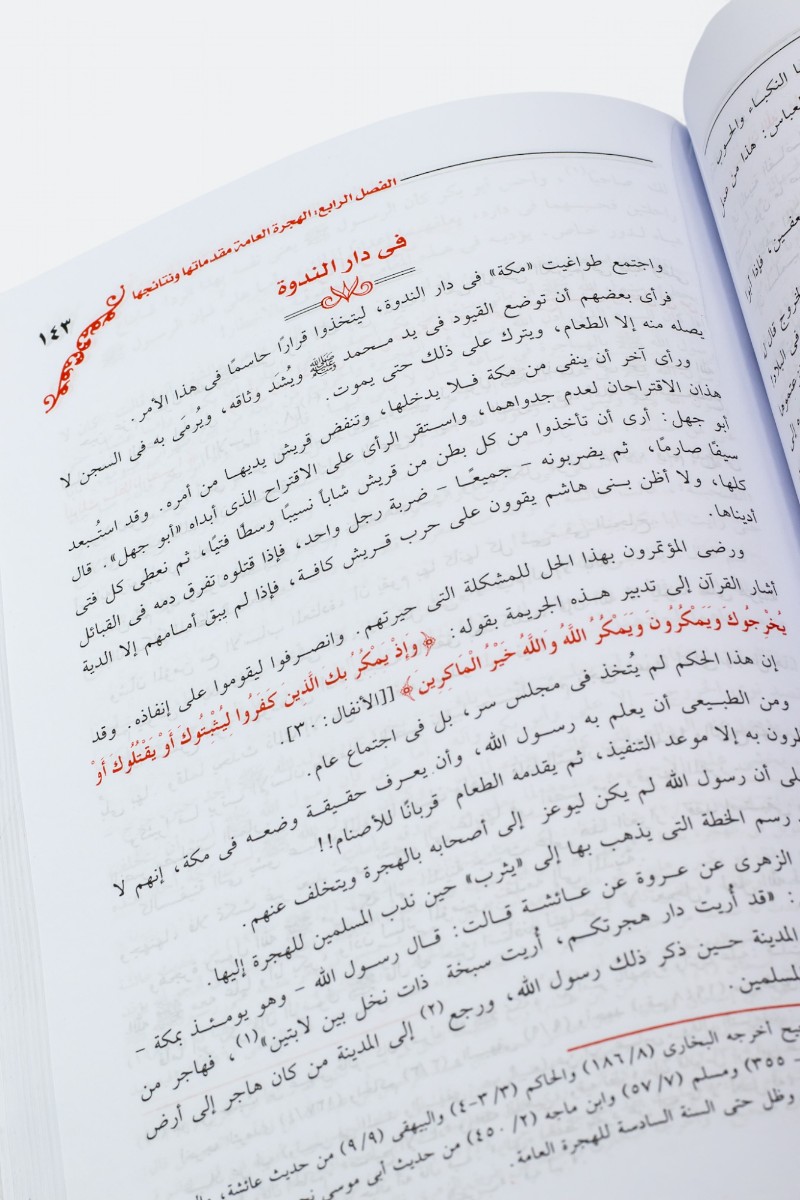 الفصل الرابع: الهجرة العامة مقدماتها ونتائجها
١٤٣
فى دار الندوة
واجتمع طواغيت «مكة» فى دار الندوة، ليتخذوا قرارًا حاسمًا فى هذا الأمر.
فرأى بعضهم أن توضع القيود فى يد محمد ﷺ ويُشَد وثاقه، ويُرمَى به فى السجن لا
يصله منه إلا الطعام، ويترك على ذلك حتى يموت.
ورأى آخر أن ينفى من مكة فلا يدخلها، وتنفض قريش يديها من أمره. وقد استُبعد
هذان الاقتراحان لعدم جدواهما، واستقر الرأى على الاقتراح الذى أبداه «أبو جهل». قال
أبو جهل: أرى أن تأخذوا من كل بطن من قريش شاباً نسيبًا وسطًا فتيًا، ثم نعطى كل فتى
سيفًا صارمًا، ثم يضربونه – جميعًا – ضربة رجل واحد، فإذا قتلوه تفرق دمه فى القبائل
كلها، ولا أظن بنى هاشم يقوون على حرب قريش كافة، فإذا لم يبق أمامهم إلا الدية
أديناها.
ورضى المؤتمرون بهذا الحل للمشكلة التى حيرتهم. وانصرفوا ليقوموا على إنفاذه. وقد
أشار القرآن إلى تدبير هذه الجريمة بقوله: ﴿وَإِذْ يَمْكُرُ بِكَ الَّذِينَ كَفَرُوا لِيُثْبِتُوكَ أَوْ يَقْتُلُوكَ أَوْ
يُخْرِجُوكَ وَيَمْكُرُونَ وَيَمْكُرُ اللَّهُ وَاللَّهُ خَيْرُ الْمَاكِرِين﴾ [[الأنفال: ٣٠].
إن هذا الحكم لم يُتخذ فى مجلس سر، بل فى اجتماع عام.
ومن الطبيعى أن يعلم به رسول الله، وأن يعرف حقيقة وضعه فى مكة، إنهم لا
به إلا موعد التنفيذ، ثم يقدمه الطعام قربانًا للأصنام!!
أن رسول الله لم يكن ليوعز إلى أصحابه بالهجرة ويتخلف عنهم.
رسم الخطة التى يذهب بها إلى «يثرب» حين ندب المسلمين للهجرة إليها.
الزهرى عن عروة عن عائشة قالت: قال رسول الله – وهو يومئذ بمكة –
: «قد أُريت دار هجرتكم، أُريت سبخة ذات نخل بين لابتين»(١)، فهاجر من
المدينة حين ذكر ذلك رسول الله، ورجع (٢) إلى المدينة من كان هاجر إلى أرض
لمسلمين.
أخرجه البخارى (١٨٦/٨) والحاكم (٣/٣-٤) والبيهقى (٩/٩) من حديث عائشة،
– ٣٥٥) ومسلم (٥٧/٧) وابن ماجه (٤٥٠/٢) من حديث أبى موسى
وظل حتى السنة السادسة للهجرة العامة.
النكباء والحوب
العباس: هذا من